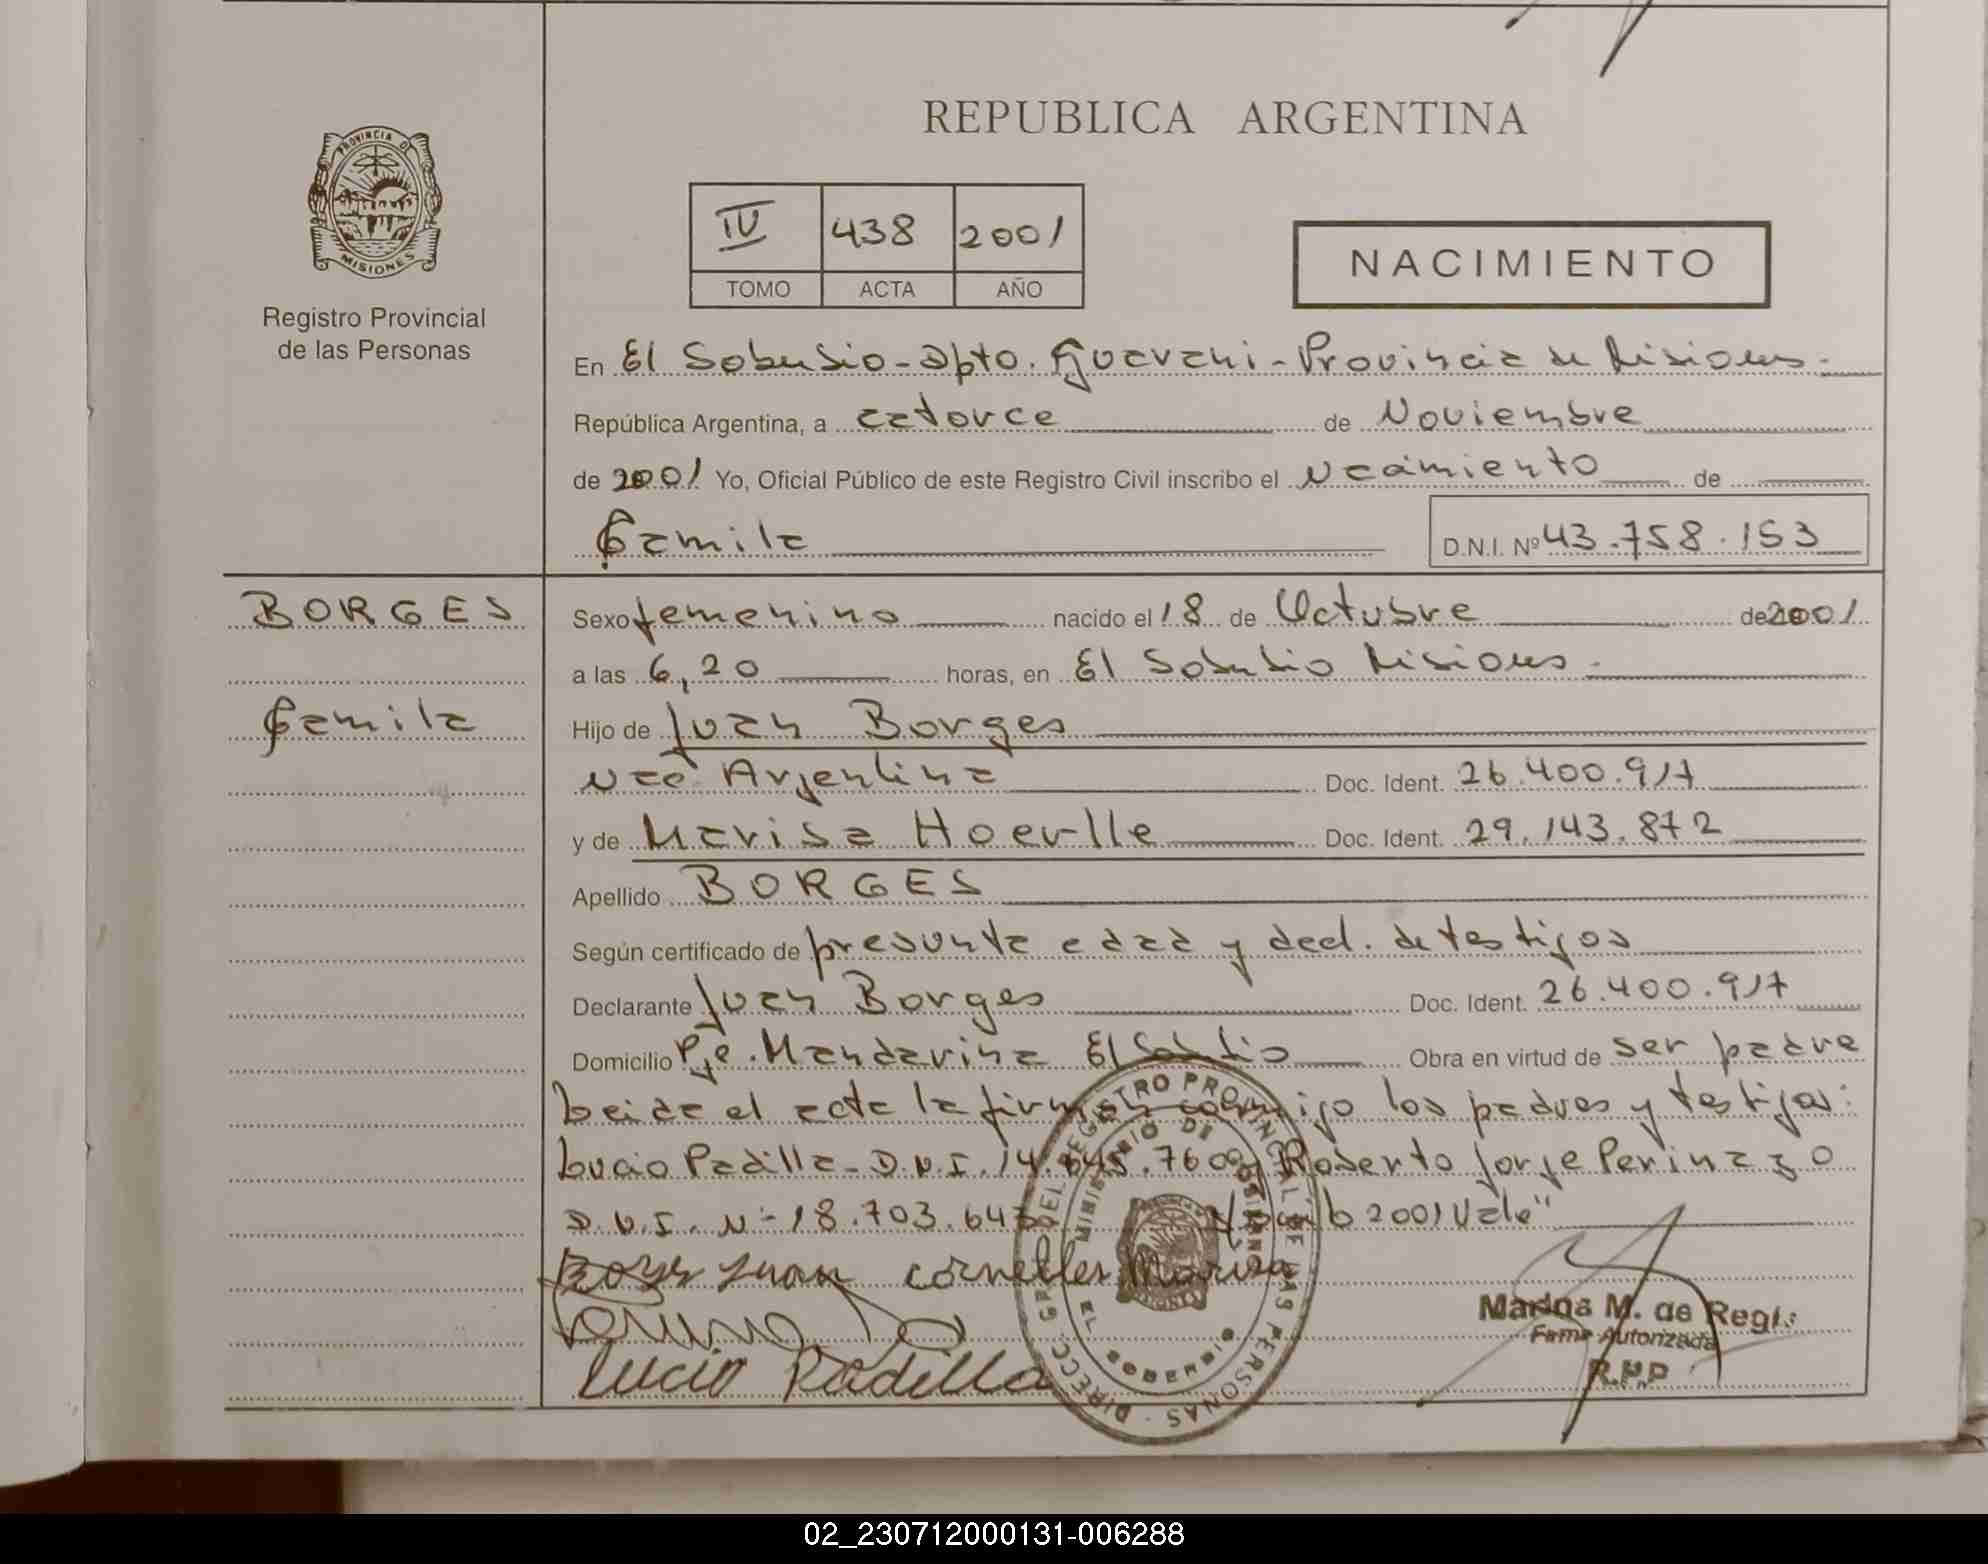 REPUBLICA ARGENTINA
PROVINCIA DE
MISIONES
Registro Provincial
de las Personas
IV 438 2001
TOMO ACTA AÑO
NACIMIENTO
En El Soberbio - Dpto. Guarani - Provincia de Misiones.-
República Argentina, a catorce de Noviembre
de 2001 Yo, Oficial Público de este Registro Civil inscribo el Nacimiento de
Camila
D.N.I. Nº 43.758.153
BORGES
Camila
Sexo femenino nacido el 18 de Octubre de 2001
a las 6,20 horas, en El Soberbio Misiones.-
Hijo de Juan Borges
Nac. Argentina Doc. Ident. 26.400.917
y de Marisa Hoerlle Doc. Ident. 29.143.872
Apellido BORGES
Según certificado de presunta edad y decl. de testigos
Declarante Juan Borges Doc. Ident. 26.400.917
Domicilio Pje. Mandarina El Soberbio Obra en virtud de ser padre
Leida el acta la firman conmigo los padres y testigos:
Lucio Padilla - D.N.I. 14.645.760 Roberto Jorge Perinazo
D.N.I. Nº 18.703.64 2001 Vale"
Juan Marisa
Lucio Padilla
DIRECC. GRAL. DEL REGISTRO PROVINCIAL DE LAS PERSONAS
MINISTERIO DE GOBIERNO
EL SOBERBIO
Marina M. de Regis
Firma Autorizada
R.P.P
02_230712000131-006288